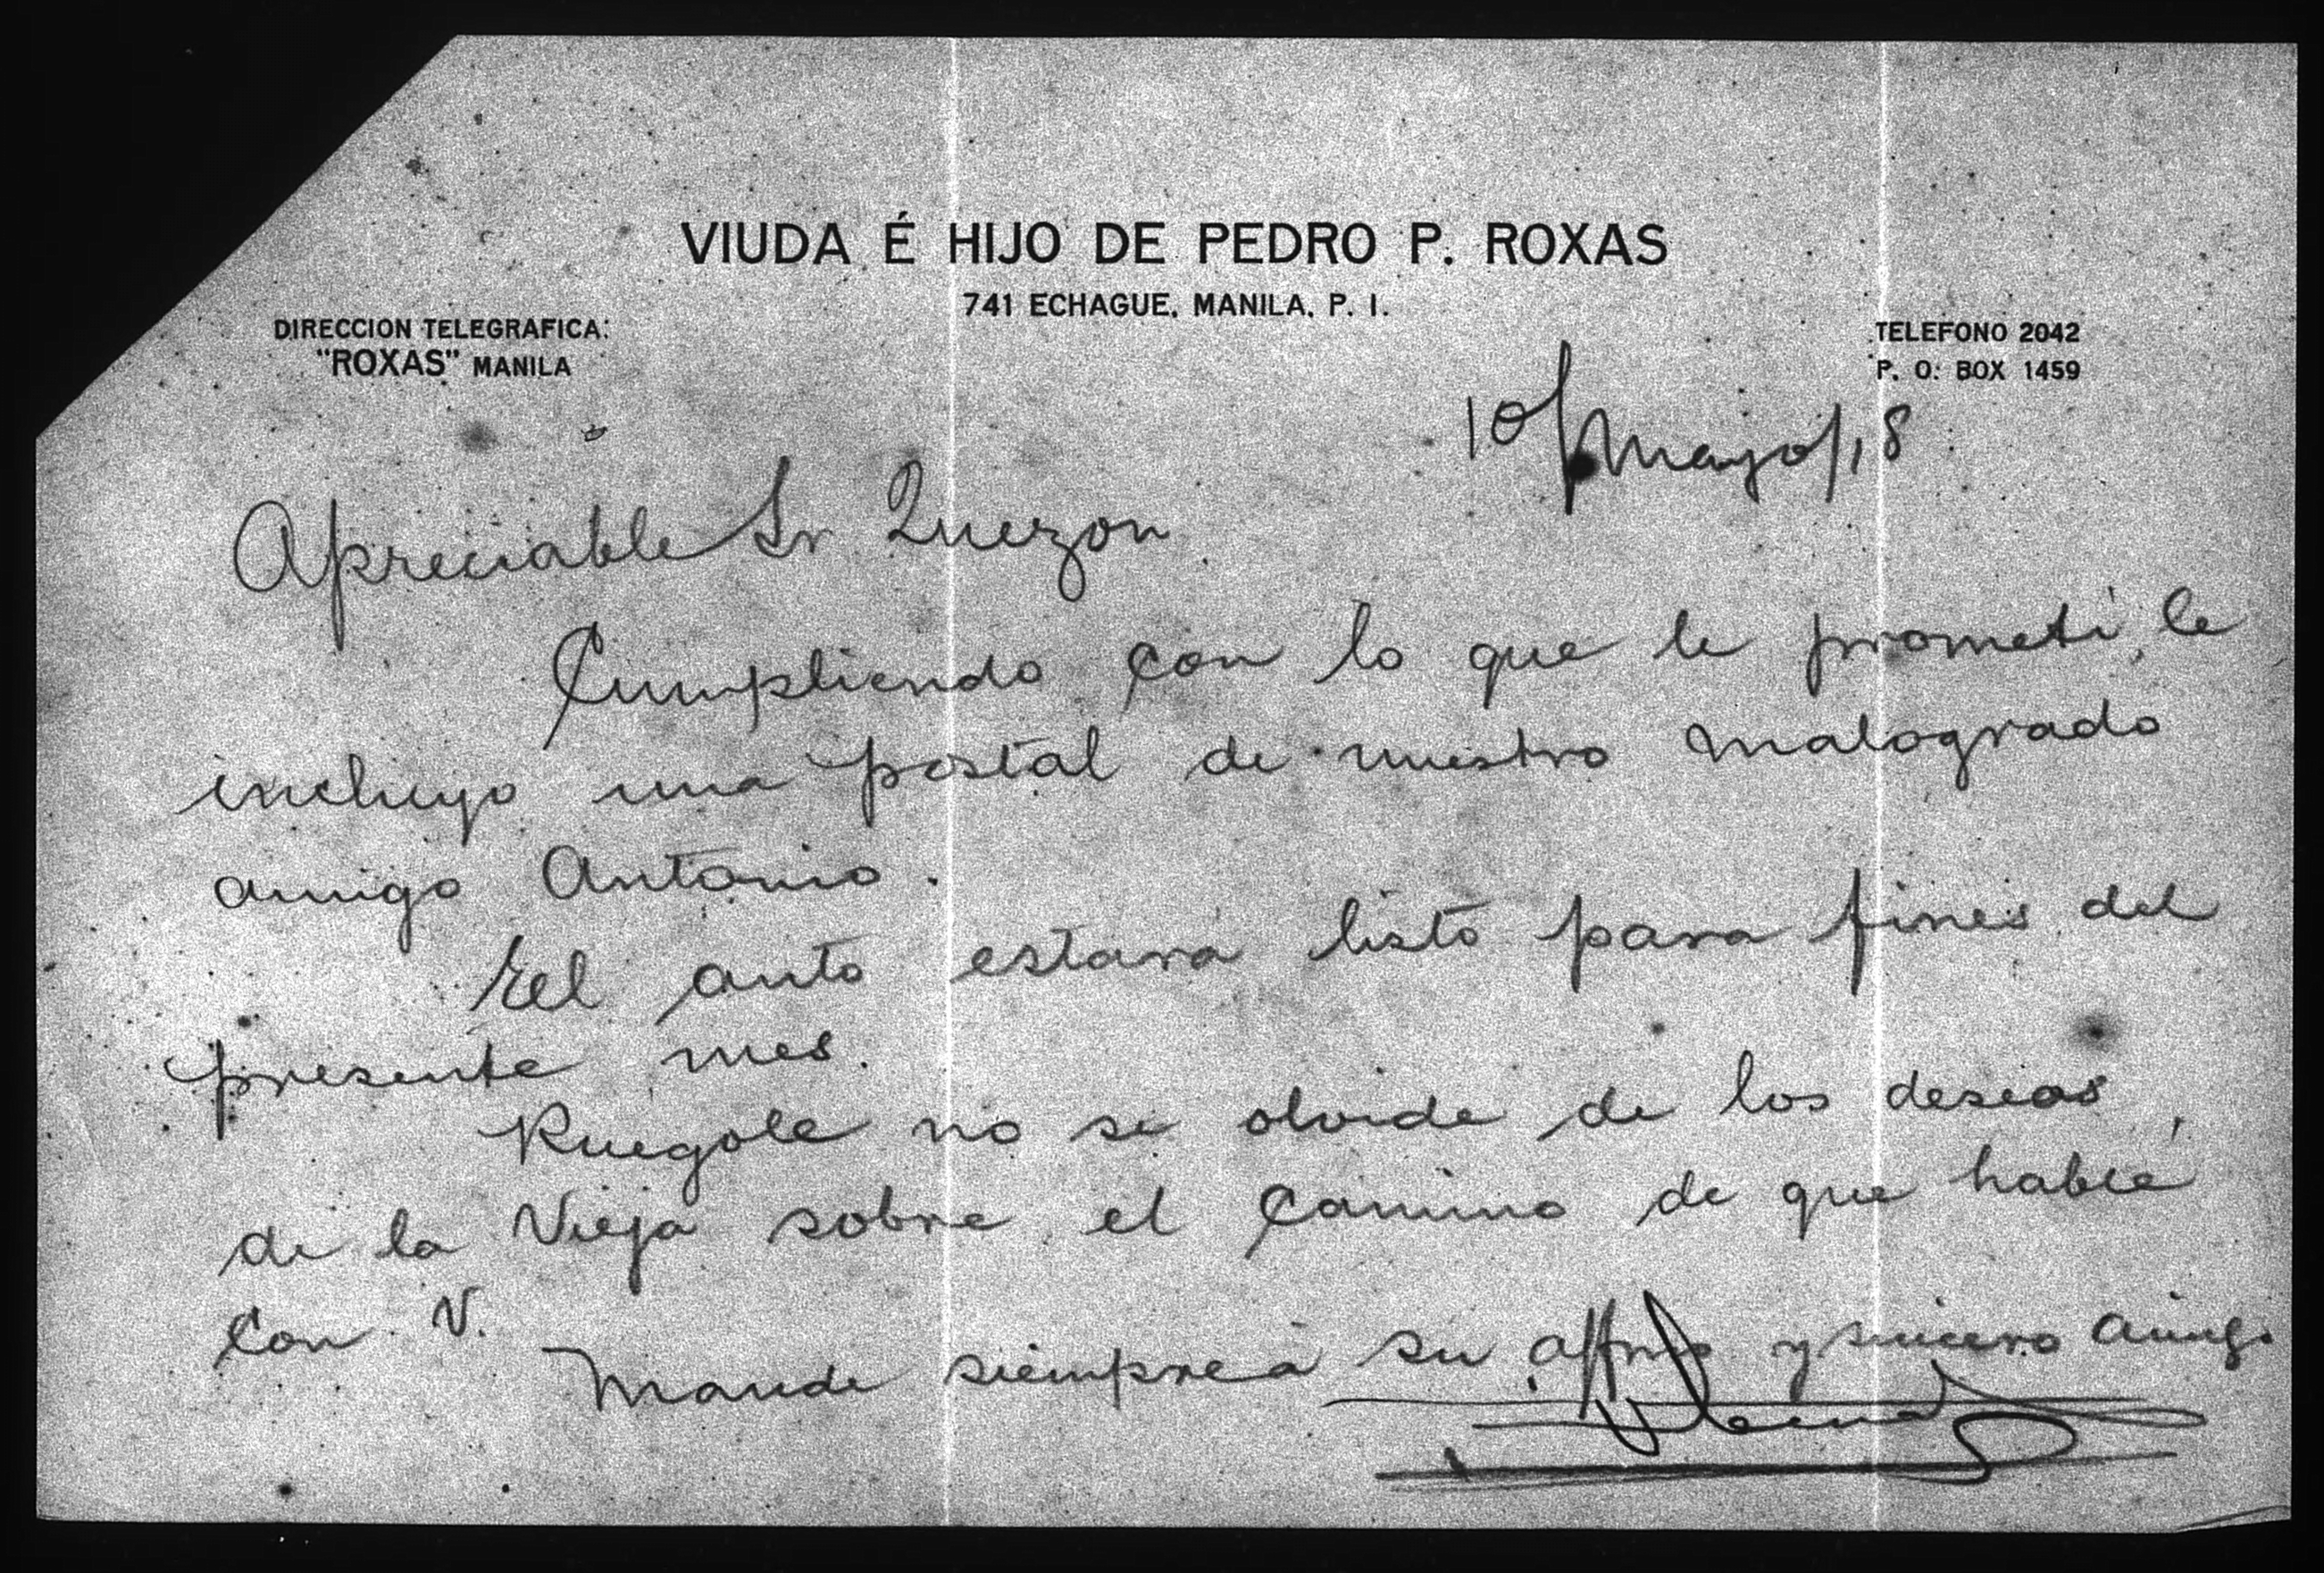 VIUDA É HIJO DE PEDRO P. ROXAS
741 ECHAGUE, MANILA, P. I.
DIRECCION TELEGRAFICA:
"ROXAS" MANILA
TELEFONO 2042
P. O. BOX 1459
10/Mayo/18
Apreciable Sr Quezon
Cumpliendo con lo que le prometí, le
incluyo una postal de nuestro malogrado
amigo Antonio.
El auto estará listo para fines del
presente mes.
Ruegole no se olvide de los deseos
de la Vieja sobre el camino de que hablé
con V.
Mande siempre á su affmo y sincero amigo